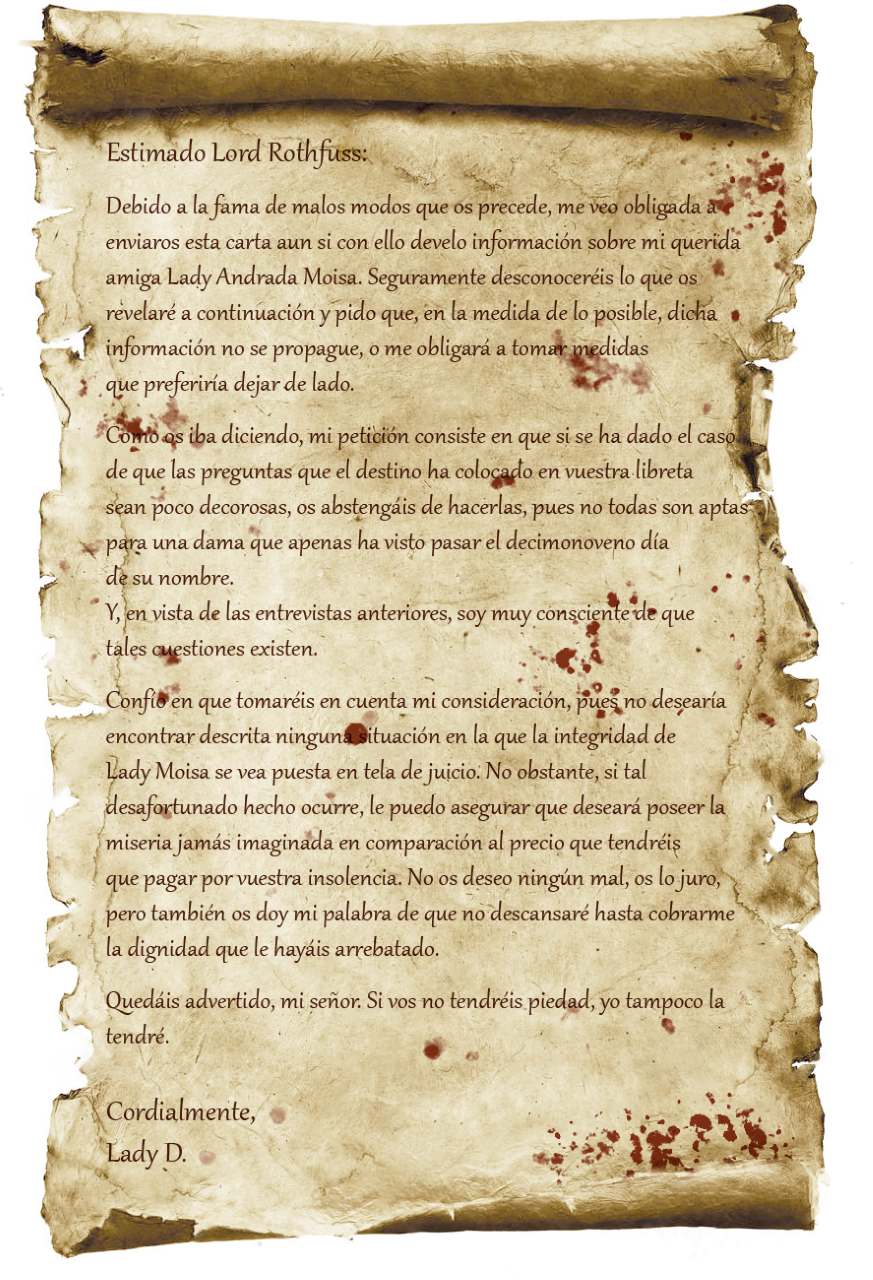 Estimado Lord Rothfuss:
Debido a la fama de malos modos que os precede, me veo obligada a
enviaros esta carta aun si con ello develo información sobre mi querida
amiga Lady Andrada Moisa. Seguramente desconoceréis lo que os
revelaré a continuación y pido que, en la medida de lo posible, dicha
información no se propague, o me obligará a tomar medidas
que preferiría dejar de lado.
Como os iba diciendo, mi petición consiste en que si se ha dado el caso
de que las preguntas que el destino ha colocado en vuestra libreta
sean poco decorosas, os abstengáis de hacerlas, pues no todas son aptas
para una dama que apenas ha visto pasar el decimonoveno día
de su nombre.
Y, en vista de las entrevistas anteriores, soy muy consciente de que
tales cuestiones existen.
Confío en que tomaréis en cuenta mi consideración, pues no desearía
encontrar descrita ninguna situación en la que la integridad de
Lady Moisa se vea puesta en tela de juicio. No obstante, si tal
desafortunado hecho ocurre, le puedo asegurar que deseará poseer la
miseria jamás imaginada en comparación al precio que tendréis
que pagar por vuestra insolencia. No os deseo ningún mal, os lo juro,
pero también os doy mi palabra de que no descansaré hasta cobrarme
la dignidad que le hayáis arrebatado.
Quedáis advertido, mi señor. Si vos no tendréis piedad, yo tampoco la
tendré.
Cordialmente,
Lady D.